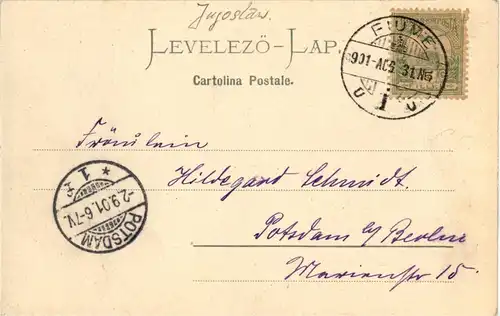 Jugoslav.
LEVELEZŐ-LAP.
Cartolina Postale.
FIUME
901-AUG 31
1
Fräulein
Hildegard Schmidt.
Potsdam b/ Berlin
Marienstr 15.
* 1
-2.9.01.6-7V.
POTSDAM